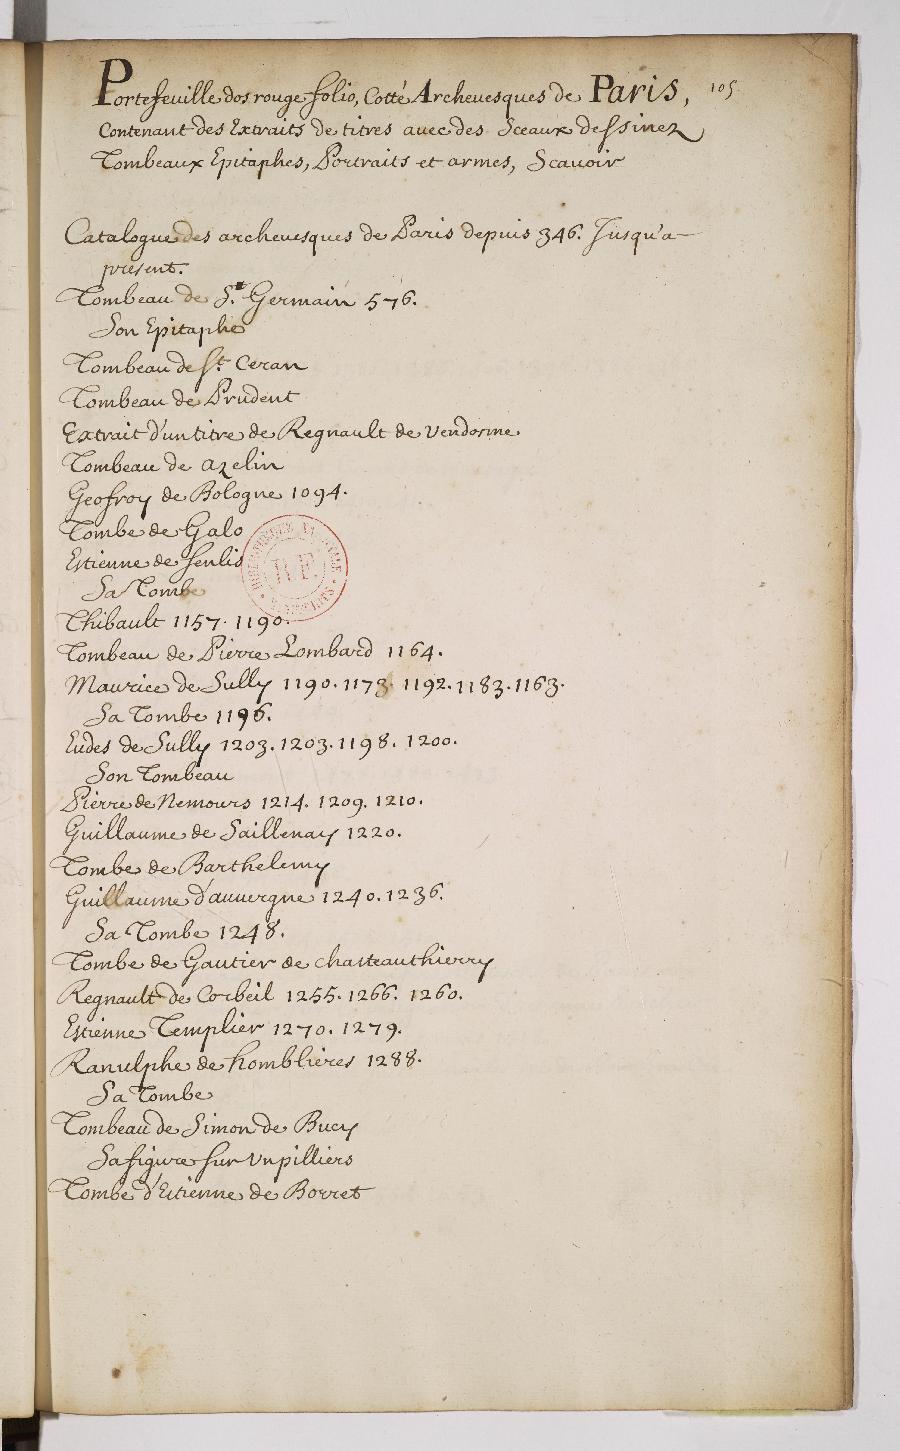 Portefeuille dos rouge folio, Cotté Archevesques de Paris, 105
Contenant des Extraits de titres avec des Sceaux dessinez
Tombeaux Epitaphes, Portraits et armes, Scavoir
Catalogue des archevesques de Paris depuis 346. Jusqu'a
present.
Tombeau de St. Germain 576.
Son Epitaphe
Tombeau de St. Ceran
Tombeau de Prudent
Extrait d'un titre de Regnault de Vendosme
Tombeau de azelin
Geofroy de Bologne 1094.
Tombe de Galo
Estienne de Senlis
Sa Tombe
Thibault 1157. 1190.
Tombeau de Pierre Lombard 1164.
Maurice de Sully 1190. 1173. 1192. 1183. 1163.
Sa Tombe 1196.
Eudes de Sully 1203. 1203. 1198. 1200.
Son Tombeau
Pierre de Nemours 1214. 1209. 1210.
Guillaume de Saillenay 1220.
Tombe de Barthelemy
Guillaume d'auvergne 1240. 1236.
Sa Tombe 1248.
Tombe de Gautier de chasteauthierry
Regnault de Corbeil 1255. 1266. 1260.
Estienne Templier 1270. 1279.
Ranulphe de homblieres 1288.
Sa Tombe
Tombeau de Simon de Bucy
Sa figure sur un pilliers
Tombe d'Estienne de Borret